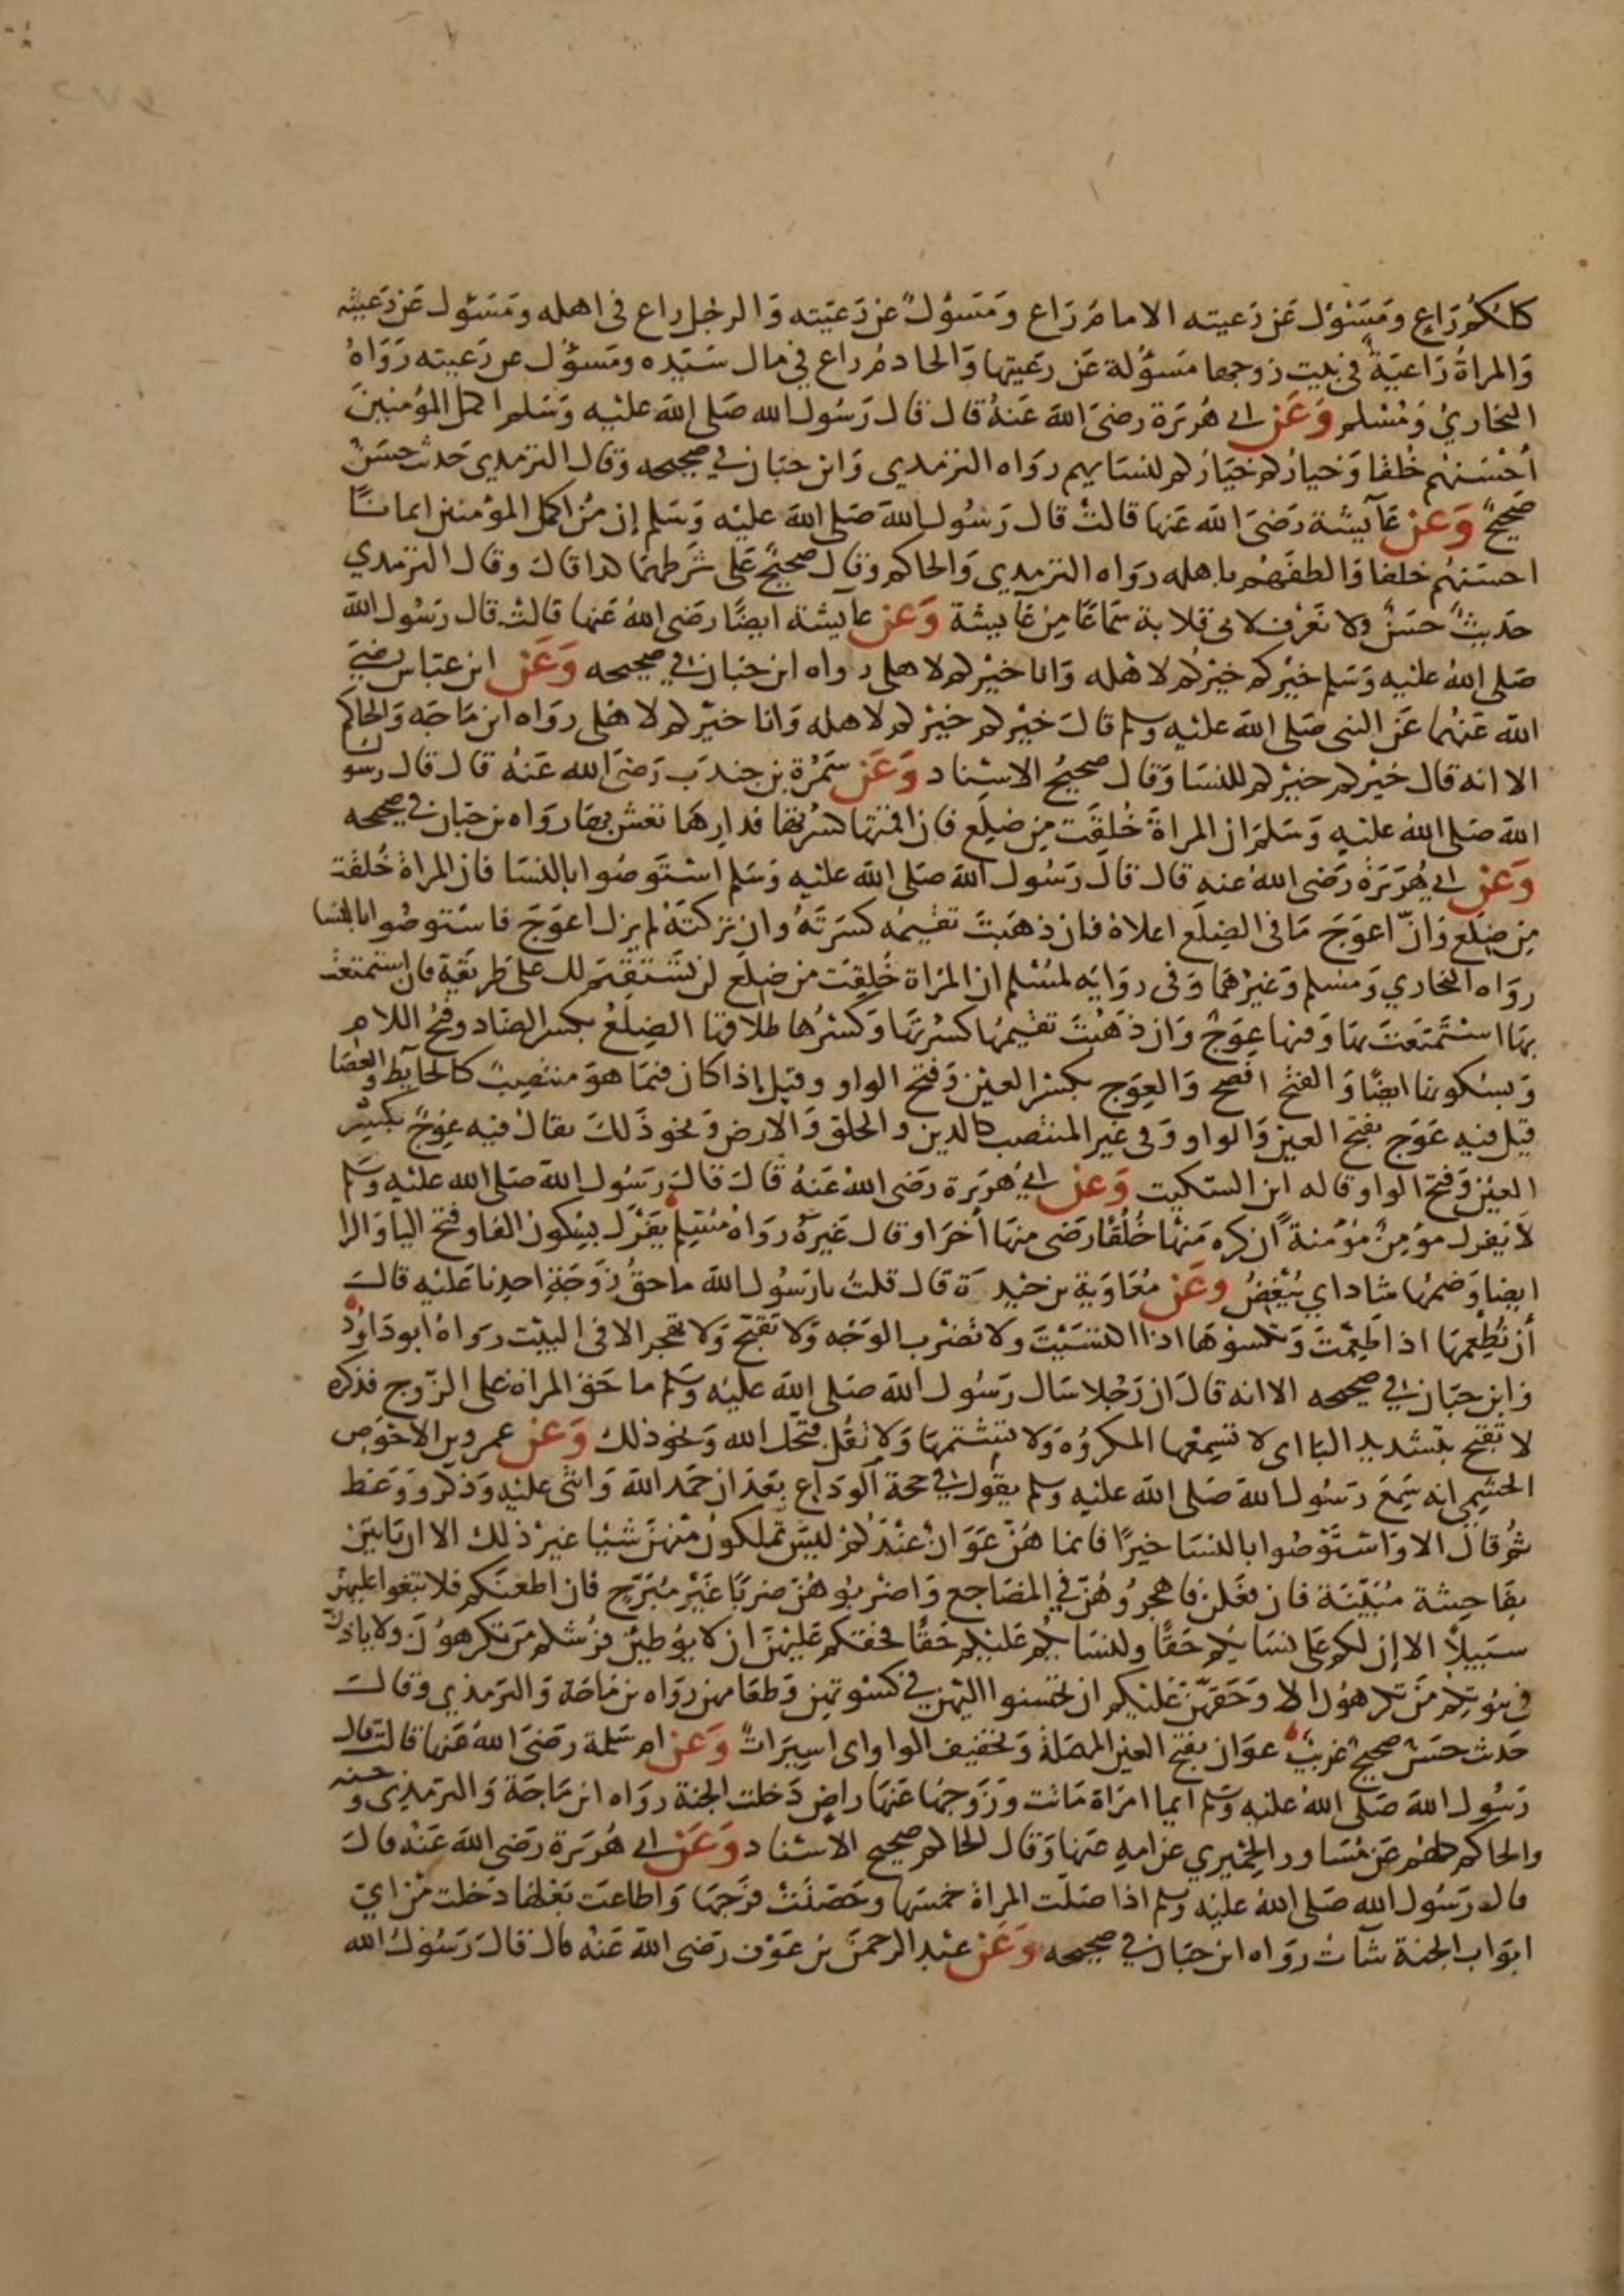 كلكم راع ومسئول عن رعيته الامام راع ومسؤل عن رعيته والرجل راع في اهله ومسئول عن رعيته
والمراة راعية في بيت زوجها مسؤلة عن رعيتها والخادم راع في مال سيده ومسؤل عن رعيته رواه
البخاري ومسلم وعن ابي هريرة رضي الله عنه قال قال رسول الله صلى الله عليه وسلم اكمل المؤمنين
احسنهم خلقا وخياركم خياركم لنسايهم رواه الترمذي وابن حبان في صحيحه وقال الترمذي حديث حسن
صحيح وعن عآيشة رضي الله عنها قالت قال رسول الله صلى الله عليه وسلم إن من اكمل المؤمنين ايمانًا
احسنهم خلقا والطفهم باهله رواه الترمذي والحاكم وقال صحيح على شرطهما كذا قال وقال الترمذي
حديث حسن ولا نعرف لابي قلابة سماعا من عايشة وعن عايشة ايضًا رضي الله عنها قالت قال رسول الله
صلى الله عليه وسلم خيركم خيركم لاهله وانا خيركم لاهلي رواه ابن حبان في صحيحه وعن ابن عباس رضي
الله عنهما عن النبي صلى الله عليه وسلم قال خيركم خيركم لاهله وانا خيركم لاهلي رواه ابن ماجه والحاكم
الا انه قال خيركم خيركم للنسا وقال صحيح الاسناد وعن سمرة بن جندب رضي الله عنه قال قال رسول
الله صلى الله عليه وسلم ان المراة خلقت من ضلع فان اقمتها كسرتها فدارها تعش بها رواه بن حبان في صحيحه
وعن ابي هريرة رضي الله عنه قال قال رسول الله صلى الله عليه وسلم استوصوا بالنسا فان المراة خلقت
من ضلع وانّ اعوج ما في الضلع اعلاه فان ذهبت تقيمه كسرته وان تركته لم يزل اعوج فاستوصوا بالنسا
رواه البخاري ومسلم وغيرهما وفي روايه لمسلم ان المراة خلقت من ضلع لن تستقيم لك على طريقة فان استمتعت
بها استمتعت بها وفيها عوج وان ذهبت تقيمها كسرتها وكسرها طلاقها الضلع بكسر الضاد وفتح اللام
وبسكونها ايضًا والفتح افصح والعوج بكسر العين وفتح الواو وقيل إذا كان فيما هو منتصب كالحآيط والعصا
قيل فيه عوج بفتح العين والواو وفي غير المنتصب كالدين والخلق والارض ونحو ذلك يقال فيه عوج بكسر
العين وفتح الواو وقاله ابن السكيت وعن ابي هريرة رضي الله عنه قال قال رسول الله صلى الله عليه وسلم
لا يفرك مؤمن مؤمنة ان كره منها خلقا رضي منها أخر او قال غيره رواه مسلم يفرك بسكون الفا وفتح اليا والرا
ايضا وضمها شاذ اي يبغض وعن معاوية بن حيدة قال قلت يا رسول الله ما حق زوجة احدنا عليه قال
أن تطعمها اذا طعمت وتكسوها اذا اكتسيت ولا تضرب الوجه ولا تقبح ولا تهجر الا في البيت رواه ابو داود
وابن حبان في صحيحه الا انه قال ان رجلا سال رسول الله صلى الله عليه وسلم ما حق المراة على الزوج فذكره
لا تقبح بتشديد البا اى لا تسمعها المكروه ولا تشتمها ولا تقل قبحك الله ونحو ذلك وعن عمرو بن الاحوص
الجشمي انه سمع رسول الله صلى الله عليه وسلم يقول في حجة الوداع بعد ان حمد الله واثنى عليه وذكر ووعظ
ثم قال الا واستوصوا بالنسا خيرًا فانما هن عوان عندكم ليس تملكون منهن شيا غير ذلك الا ان ياتين
بفاحشة مبينة فان فعلن فاهجروهن في المضاجع واضربوهن ضربا غير مبرح فان اطعنكم فلا تبغوا عليهن
سبيلاً الا إن لكم على نسايكم حقًا ولنسايكم عليكم حقًا فحقكم عليهن ان لا يوطين فرشكم من تكرهون ولا ياذن
في بيوتكم من تكرهون الا وحقهن عليكم ان تحسنوا اليهن في كسوتهن وطعامهن رواه بن ماجة والترمذي وقال
حديث حسن صحيح غريب عوان بفتح العين المهملة وتخفيف الواو اى اسيرات وعن ام سلمة رضي الله عنها قالت قال
رسول الله صلى الله عليه وسلم ايما امراة ماتت وزوجها عنها راض دخلت الجنة رواه ابن ماجة والترمذي وحسنه
والحاكم كلهم عن مساور الحميري عن امه عنها وقال الحاكم صحيح الاسناد وعن ابي هريرة رضي الله عنه قال
قال رسول الله صلى الله عليه وسلم اذا صلت المراة خمسها وحصنت فرجها واطاعت بعلها دخلت من اي
ابواب الجنة شآت رواه ابن حبان في صحيحه وعن عبد الرحمن بن عوف رضي الله عنه قال قال رسول الله